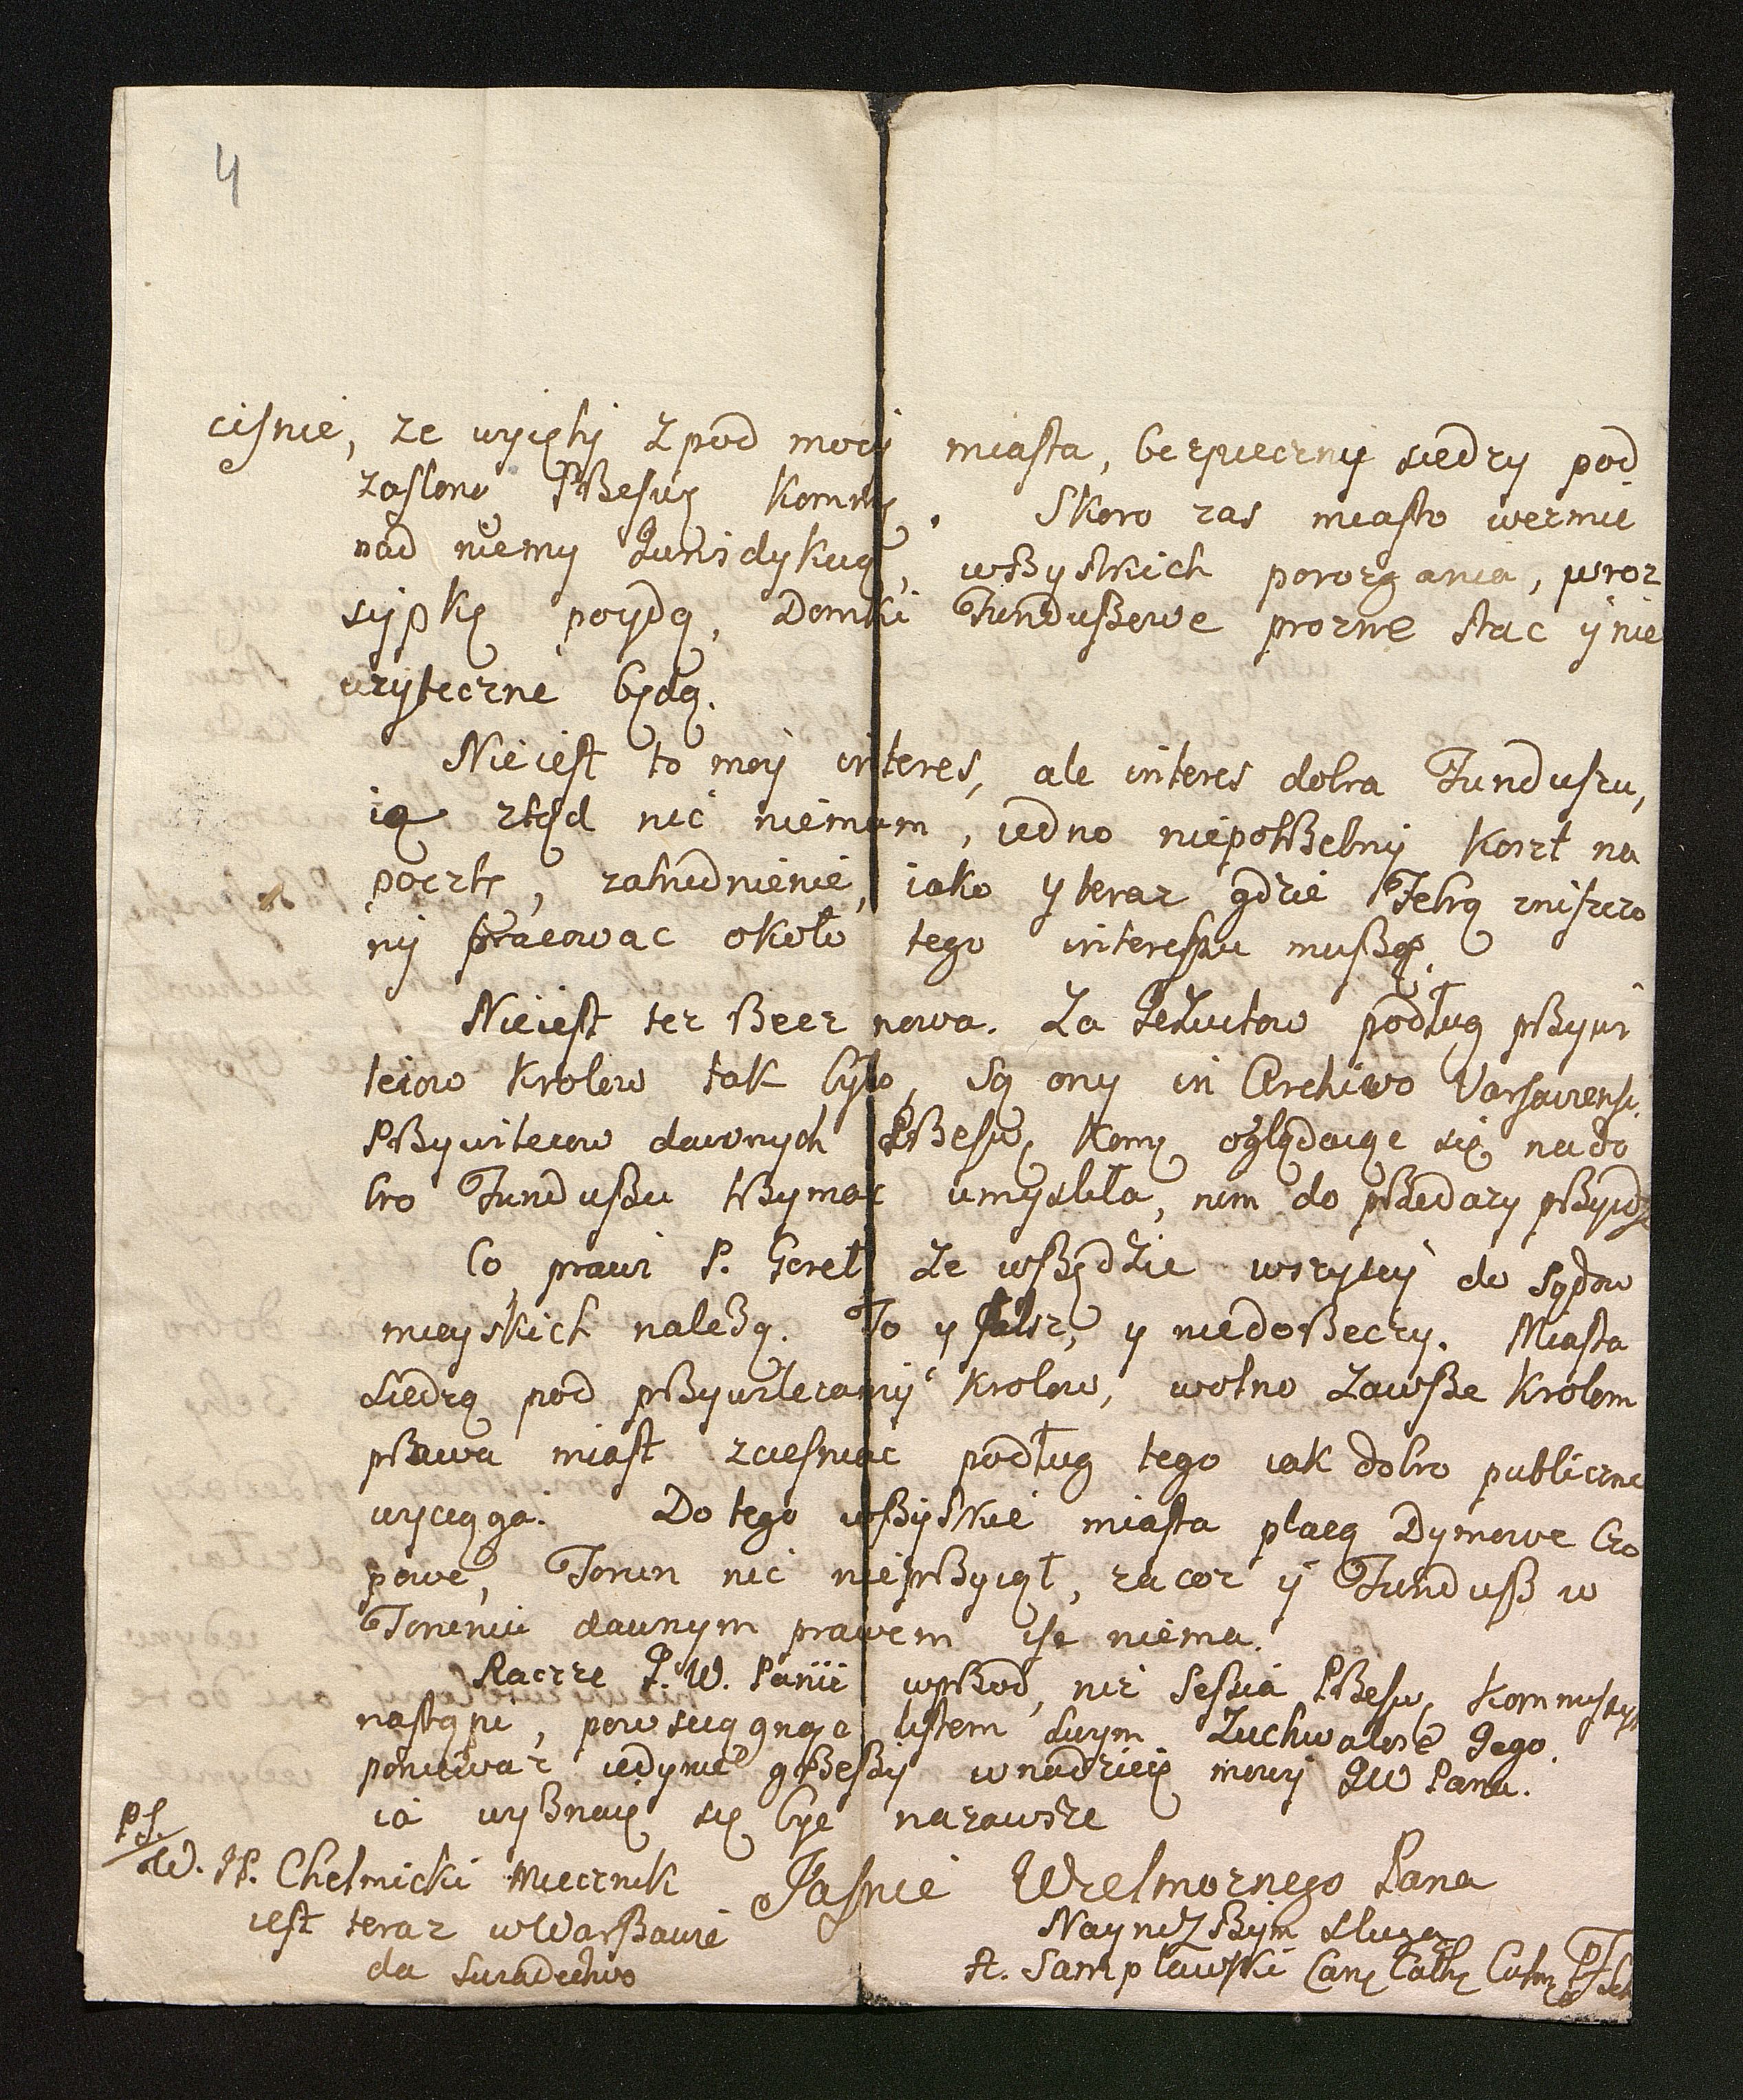 4
ciſnie, ze wyięty z pod mocy miaſta, bezpieczny siedzy pod
zaslono PRzeſwę Kommy. Skoro zas miaſto wezmie
nad niemy Jurisdykcyą, wſzyſtkich porozgania, w roz
sypkę poydą, Domki Funduſzowe prozne ſtac y nie
uzyteczne będą.
Nieieſt to moy interes, ale interes dobra Funduſzu,
ia ztąd nic niemam, iedno niepotrzebny Koszt na
pocztę, zatrudnienie, iako y teraz gdzie Febrą zniszczo
ny pracowac około tego intereſsu muſzę.
Nieieſt tez Rzecz nowa. Za Jezuitow podług przywi
leiow Krolow tak było, są ony in Archivo Varsaviensi.
Przywileiow dawnych PRzeſw. Komy oglądaiąc się na do
bro Funduſzu trzymac umyslıła, nim do przedazy przyidzie
Co prawi P. Geret ze wſzędzie wszyscy do sądow
mieyskich nalezą. To y falsz, y niedorzeczy. Miaſta
siedzą pod przywileiamy Krolow, wolno zawſze Krolom
prawa miaſt zcieſniac podług tego iak dobro publiczne
wyciąga. Do tego wſzyſtkie miaſta placą Dymowe Czo
powe, Torun nic nieprzyiął, za coz y Funduſz w
Toruniu dawnym prawem iſc niema.
Raczze J. W. Panie wprzod, niz Seſsia PRzeſw. Kommiſsyi
naſtąpi, powsciągnąc liſtem swym Zuchwalosc Jego.
poniewaz iedynie grzeſzy w nadzieię mocy JW Pana.
ia wyznaię się byc nazawsze
Jaſnie Wielmoznego Pana
Nayniższym sługą
A. Sampławski Can Cath Culm
PS.
W. JP. Chelmicki Miecznik
ieſt teraz w Warſzawie
da swiadectwo